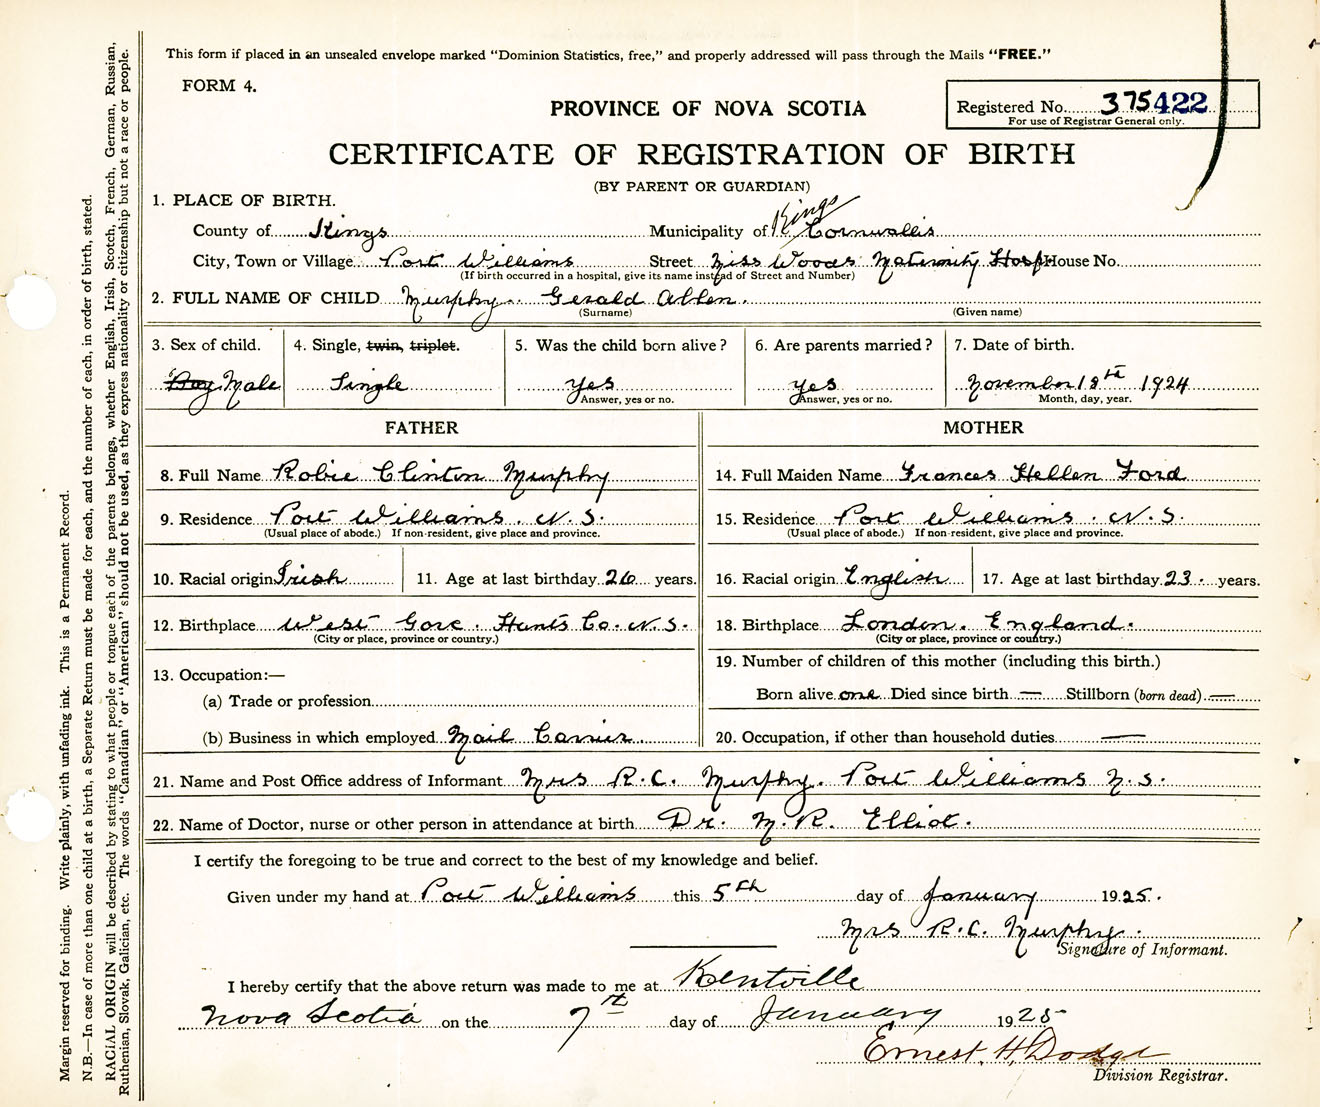 This form if placed in an unsealed envelope marked "Dominion Statistics, free," and properly addressed will pass through the Mails "FREE."
FORM 4.
Registered No. 375422
For use of Registrar General only.
PROVINCE OF NOVA SCOTIA
CERTIFICATE OF REGISTRATION OF BIRTH
(BY PARENT OR GUARDIAN)
1. PLACE OF BIRTH.
Kings
County of Kings Municipality of Cornwallis
City, Town or Village Port Williams Street Miss Woods Maternity Hosp House No.
(If birth occurred in a hospital, give its name instead of Street and Number)
2. FULL NAME OF CHILD Murphy. Gerald Allen.
(Surname) (Given name)
3. Sex of child. 4. Single, twin, triplet. 5. Was the child born alive? 6. Are parents married? 7. Date of birth.
Boy Male Single yes yes November 18th 1924
Answer, yes or no. Answer, yes or no. Month, day, year.
FATHER MOTHER
8. Full Name Robie Clinton Murphy 14. Full Maiden Name Frances Hellen Ford
9. Residence Port Williams. N.S. 15. Residence Port Williams. N.S.
(Usual place of abode.) If non-resident, give place and province. (Usual place of abode.) If non-resident, give place and province.
10. Racial origin Irish 11. Age at last birthday 26 years. 16. Racial origin English 17. Age at last birthday 23. years.
12. Birthplace West Gore. Hants Co. N.S. 18. Birthplace London. England.
(City or place, province or country.) (City or place, province or country.)
13. Occupation:— 19. Number of children of this mother (including this birth.)
(a) Trade or profession Born alive one Died since birth — Stillborn (born dead) —
(b) Business in which employed Mail Carrier. 20. Occupation, if other than household duties —
21. Name and Post Office address of Informant Mrs R.C. Murphy. Port Williams N.S.
22. Name of Doctor, nurse or other person in attendance at birth Dr. M.R. Elliot.
I certify the foregoing to be true and correct to the best of my knowledge and belief.
Given under my hand at Port Williams this 5th day of January 1925.
Mrs R.C. Murphy.
Signature of Informant.
I hereby certify that the above return was made to me at Kentville
Nova Scotia on the 7th day of January 1925
Ernest. H. Dodge
Division Registrar.
Margin reserved for binding. Write plainly, with unfading ink. This is a Permanent Record.
N.B.—In case of more than one child at a birth, a Separate Return must be made for each, and the number of each, in order of birth, stated.
RACIAL ORIGIN will be described by stating to what people or tongue each of the parents belongs, whether English, Irish, Scotch, French, German, Russian,
Ruthenian, Slovak, Galician, etc. The words "Canadian" or "American" should not be used, as they express nationality or citizenship but not a race or people.